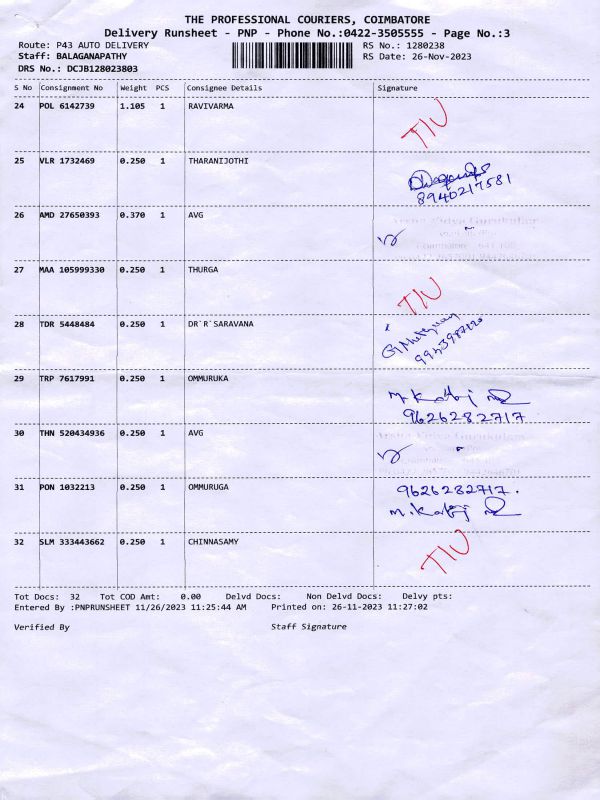 THE PROFESSIONAL COURIERS, COIMBATORE
Delivery Runsheet - PNP - Phone No.:0422-3505555 - Page No.:3
Route: P43 AUTO DELIVERY RS No.: 1280238
Staff: BALAGANAPATHY RS Date: 26-Nov-2023
DRS No.: DCJB128023803
S No Consignment No Weight PCS Consignee Details Signature
24 POL 6142739 1.105 1 RAVIVARMA TIU
25 VLR 1732469 0.250 1 THARANIJOTHI
8940217581
26 AMD 27650393 0.370 1 AVG
27 MAA 105999330 0.250 1 THURGA TIU
28 TDR 5448484 0.250 1 DR`R`SARAVANA
29 TRP 7617991 0.250 1 OMMURUKA
9626282717
30 THN 520434936 0.250 1 AVG
31 PON 1032213 0.250 1 OMMURUGA 9626282717.
32 SLM 333443662 0.250 1 CHINNASAMY TIU
Tot Docs: 32 Tot COD Amt: 0.00 Delvd Docs: Non Delvd Docs: Delvy pts:
Entered By :PNPRUNSHEET 11/26/2023 11:25:44 AM Printed on: 26-11-2023 11:27:02
Verified By Staff Signature